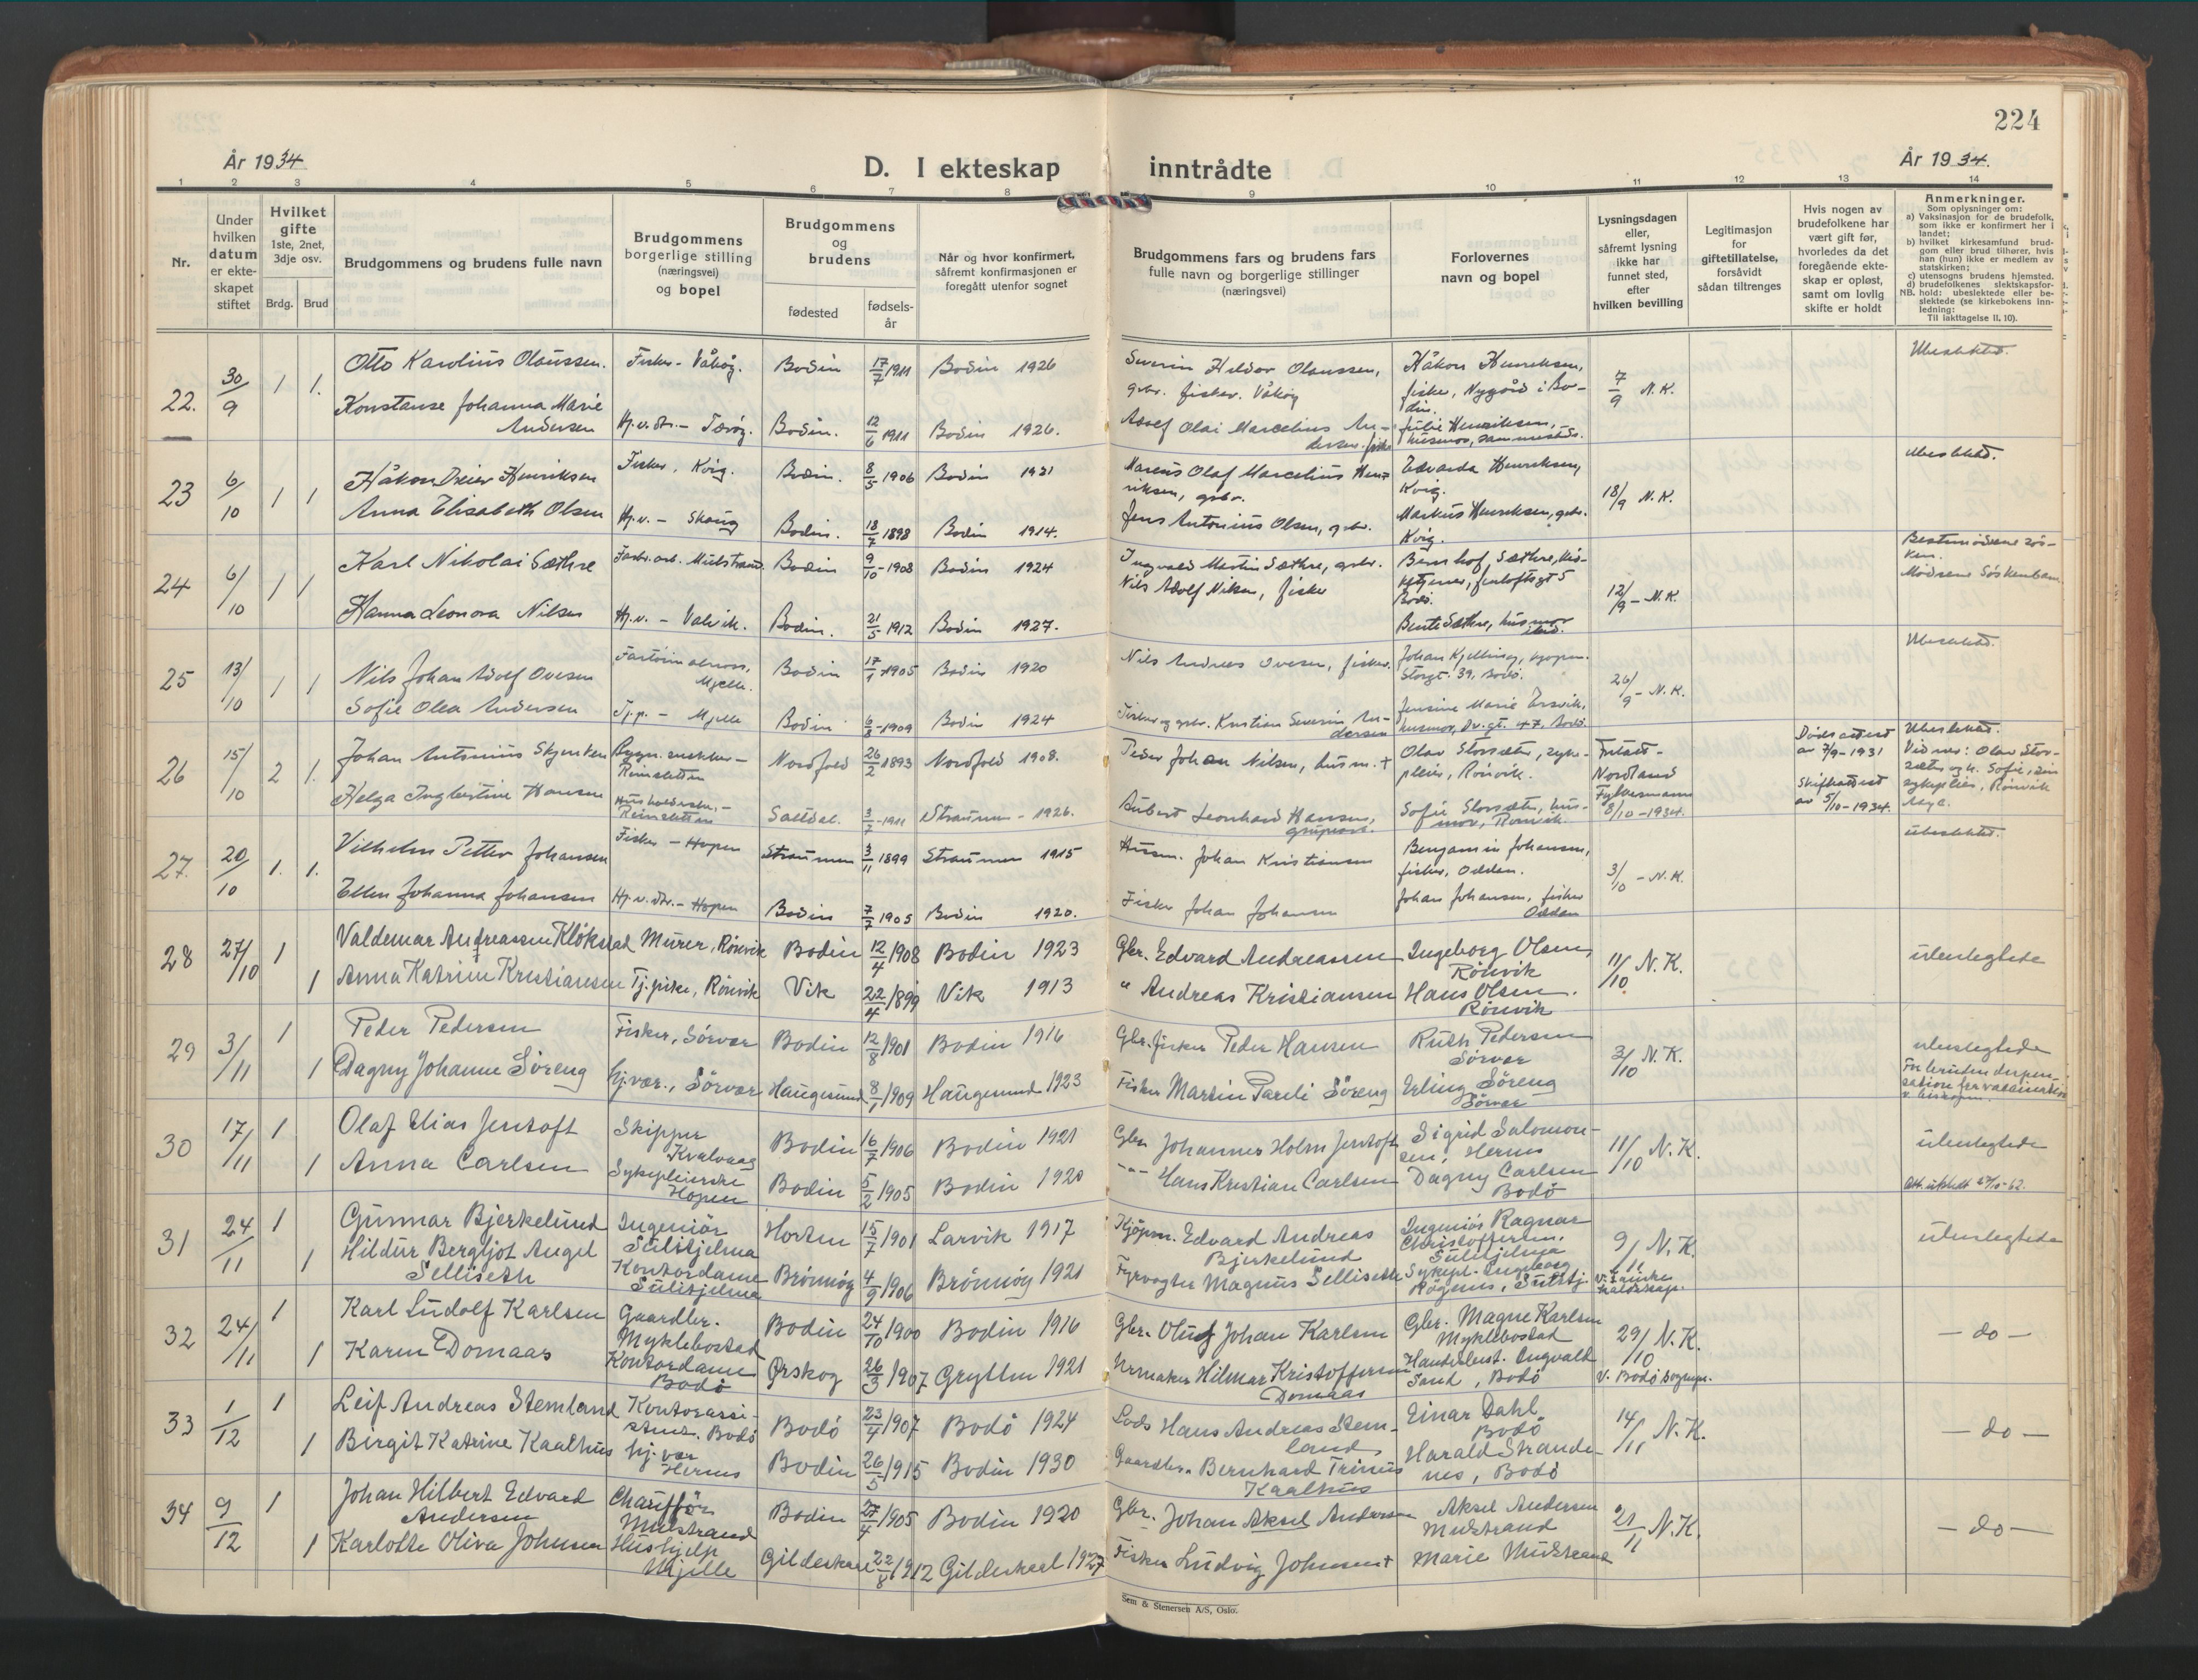 224
År 1934
D. I ekteskap inntrådte
År 1934.
1 2 3 4 5 6 7 8 9 10 11 12 13 14
Nr.
Under hvilken datum er ekteskapet stiftet
Hvilket gifte 1ste, 2net, 3dje osv.
Brdg. Brud
Brudgommens og brudens fulle navn
Brudgommens borgerlige stilling (næringsvei) og bopel
Brudgommens og brudens
fødested
fødselsår
Når og hvor konfirmert, såfremt konfirmasjonen er foregått utenfor sognet
Brudgommens fars og brudens fars fulle navn og borgerlige stillinger (næringsvei)
Forlovernes navn og bopel
Lysningsdagen eller, såfremt lysning ikke har funnet sted, efter hvilken bevilling
Legitimasjon for giftetillatelse, forsåvidt sådan tiltrenges
Hvis nogen av brudefolkene har vært gift før, hvorledes da det foregående ekteskap er opløst, samt om lovlig skifte er holdt
Anmerkninger.
Som oplysninger om:
a) Vaksinasjon for de brudefolk, som ikke er konfirmert her i landet;
b) hvilket kirkesamfund brudgom eller brud tilhører, hvis han (hun) ikke er medlem av statskirken;
c) utensogns brudens hjemsted.
d) brudefolkenes slektskapsforhold: ubeslektede eller beslektede (se kirkebokens innledning:
NB.
Til iakttagelse II, 10).
22. 30/9 1 1. Otto Karolius Olaussen. Fisker - Vågøy. Bodin 17/7 1911 Bodin 1926 Severin Hildor Olaussen, gbr. fisker. Vågøy Håkon Henriksen, fisker, Nygård i Bodin. 7/9 N.K. Ubeslektet.
Konstanse Johanna Marie Andersen Hj.v. dtr. - Bodin. 12/6 1911 Bodin 1926. Adolf Olai Marcelius Andersen. fisker Julie Henriksen, husmor, sammesteds.
23 6/10 1 1 Håkon Henriksen Fisker, Kvig. Bodin. 8/5 1906 Bodin 1921 Marcus Olaf Marcelius Henriksen, gbr. Edvarda Henriksen, Kvig. 18/9 N.K. Ubeslektet.
Anna Elisabeth Olsen Hj.v. - Skaug Bodin. 18/7 1898 Bodin 1914. Jens Antonius Olsen, gbr. Markus Henriksen, gbr. Kvig.
24 6/10 1 1 Karl Nikolai Sæthre Bodin 9/10 - 1908 Bodin 1924 Ingvald Martin Sæthre, gbr. Sæthre, Bodø. 12/9 - N.K.
Hanna Leonora Nilsen Hj.v. - Valvik. Bodin. 21/5 1912 Bodin 1927. Nils Adolf Nilsen, fisker Bente Sæthre, husmor
25 13/10 1 1 Nils Johan Adolf Ovesen Mjelle. Bodin 17/1 1905 Bodin 1920 Nils Andreas Ovesen, fisker. Johan Kjelling, Storgt. 39, Bodø. 26/9 - N.K. Ubeslektet.
Sofie Olea Andersen Tj.p. - Mjelle Bodin 1909 Bodin 1924 Fisker og gbr. Kristian Severin Andersen Jensine Marie husmor, Dr. gt. 47, Bodø.
26 15/10 2 1. Johan Antonius Bygn. snekker - Reinsletten Nordfold 26/2 1893 Nordfold 1908. Peder Johan Nilsen, husm. † Olav Storsæter, sykepleier, Rønvik. Fritatt - Nordland Fylkesmann 8/10 - 1934. Dødsattest av 7/9 - 1931 Skifteattest av 5/10 - 1934. Ubeslektet.
Helga Ingbertine Hansen Reinsletten Saltdal. 3/7 - 1911 Straumen - 1926. Aubert Leonhard Hansen, Sofie Storsæter, husmor, Rønvik.
27. 20/10 1. 1. Vilhelm Petter Johansen Fisker - Hopen Straumen 3/11 1899 Straumen 1915 Husm. Johan Kristiansen Benjamin Johansen, fisker, Odden. 3/10 - N.K. Ubeslektet.
Ellen Johanna Johansen Hj.v. dtr. - Hopen Bodin 7/7 1905 Bodin 1920. Fisker Johan Johansen Johan Johansen, fisker Odden
28 27/10 1 Valdemar Andreassen Klökstad Murer, Rönvik Bodin 12/4 1908 Bodin 1923 Gbr. Edvard Andreassen Ingeborg Olsen, Rönvik 11/10 N.K. ubeslegtede
1 Anna Katrine Kristiansen Tj.pike, Rönvik Vik 22/4 1899 Vik 1913 " Andreas Kristiansen Hans Olsen. Rönvik
29 3/11 1 Peder Pedersen Fisker, Sörvær Bodin 12/8 1901 Bodin 1916 Gbr. fisker Peder Hansen Ruth Pedersen Sörvær 3/10 N.K. ubeslegtede
1 Dagny Johanne Söreng hj.vær., Sörvær Haugesund 8/1 1909 Haugesund 1923 Fisker Martin Pareli Söreng Erling Söreng Sörvær
30 17/11 1 Olaf Elias Jentoft Skipper Kvalvaag Bodin 16/7 1906 Bodin 1921 Gbr. Johannes Holm Jentoft Sigrid Salomonsen, Hernes 11/10 N.K. ubeslegtede
1 Anna Carlsen Sykepleierske Hopen Bodin 5/2 1905 Bodin 1920 -"- Hans Kristian Carlsen Dagny Carlsen Bodö
31 24/11 1 Gunnar Bjerkelund Ingeniör Sulitjelma Horten 15/7 1901 Larvik 1917 Kjöpm. Edvard Andreas Bjerkelund Ingeniör Ragnar Christoffersen, Sulitjelma 9/11 N.K. ubeslegtede
1 Hildur Bergljot Angel Selliseth Kontordame Sulitjelma Brönnöy 4/9 1906 Brönnöy 1921 Fyrvogter Magnus Selliseth Sykepl. Ingeborg Rögnes, Sulitj.
32 24/11 1 Karl Ludolf Karlsen Gaardbr. Myklebostad Bodin 24/10 1900 Bodin 1916 Gbr. Oluf Johan Karlsen Gbr. Magne Karlsen Myklebostad 29/10 N.K. v. Bodö sogn. - do -
1 Karen Domaas Kontordame Bodö Ørskog 26/3 1907 Grytten 1921 Urmaker Hilmar Kristoffersen Domaas Ingvald Sand, Bodö
33 1/12 1 Leif Andreas Stemland Kontorassistent. Bodö Bodö 23/4 1907 Bodö 1924 Lods Hans Andreas Stemland, Einar Dahl Bodö 14/11 N.K. - do -
1 Birgit Katrine Kaalhus hj.vær Hernes Bodin 26/5 1915 Bodin 1930 Gaardbr. Bernhard Trinius Kaalhus Harald Strandenes, Bodö
34 9/12 1 Johan Hilbert Edvard Andersen Chaufför Mulstrand Bodin 27/4 1905 Bodin 1920 Gbr. Johan Aksel Andersen Aksel Andersen Mulstrand 21/11 N.K. - do -
1 Karlotte Oliva Johnsen Hushjelp Mjelle Gildeskaal 22/8 1912 Gildeskaal 1927 Fisker Ludvig Johnsen † Marie Mulstrand
Sem & Stenersen A/S, Oslo.